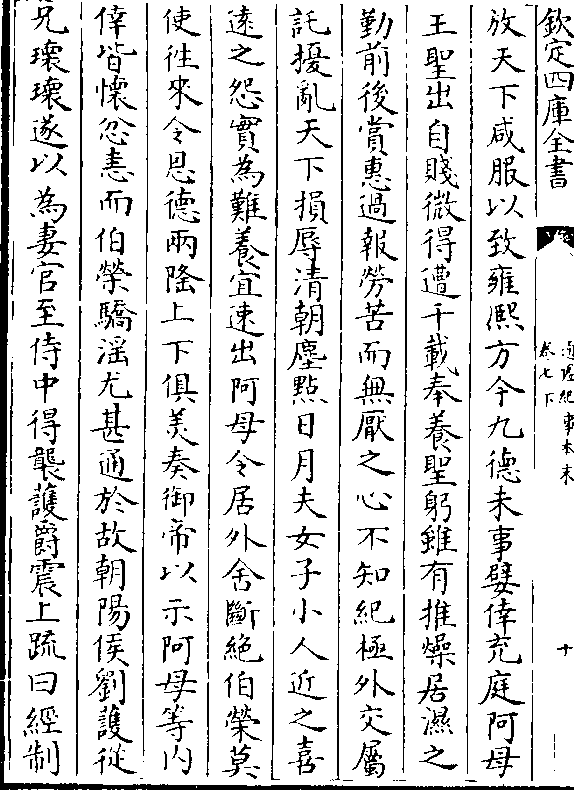 欽定四庫全書
通鑑紀事本末
卷七下
十
放天下咸服以致雍熙方今九德未事嬖倖充庭阿母
王聖出自賤微得遭千載奉養聖躬雖有推燥居濕之
勤前後賞惠過報勞苦而無厭之心不知紀極外交屬
託擾亂天下損辱清朝塵點日月夫女子小人近之喜
遠之怨實為難養宜速出阿母令居外舍斷絶伯榮莫
使徃來令恩德兩隆上下俱美奏御帝以示阿母等内
倖皆懷忿恚而伯榮驕滛尤甚通於故朝陽侯劉護從
兄瓌瓌遂以為妻官至侍中得襲護爵震上疏曰經制